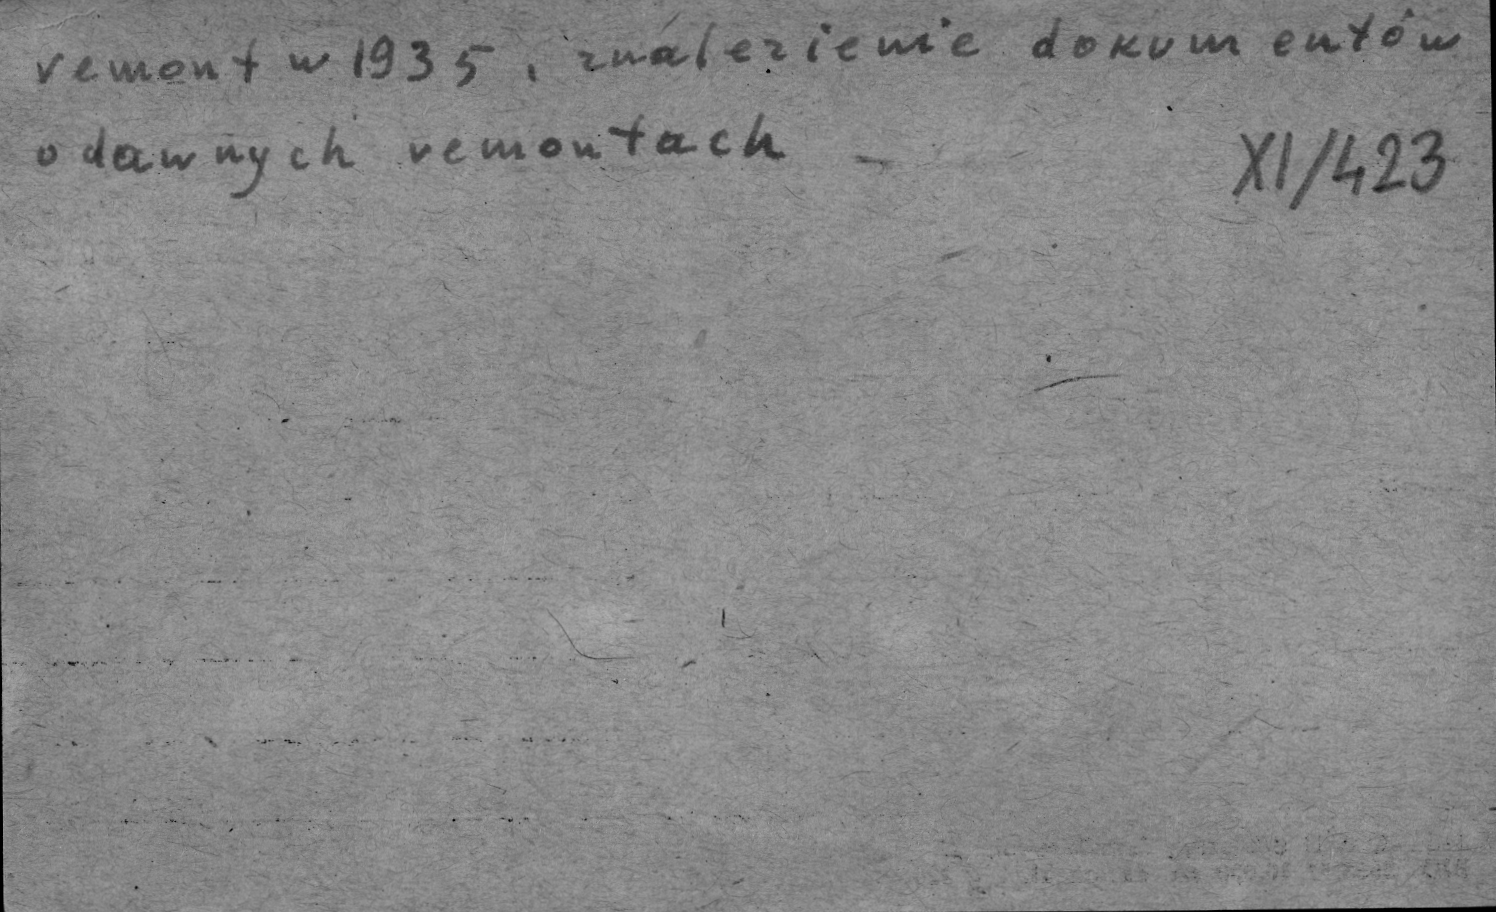 remont w 1935, znalezienie dokumentów
o dawnych remontach -
XI/423